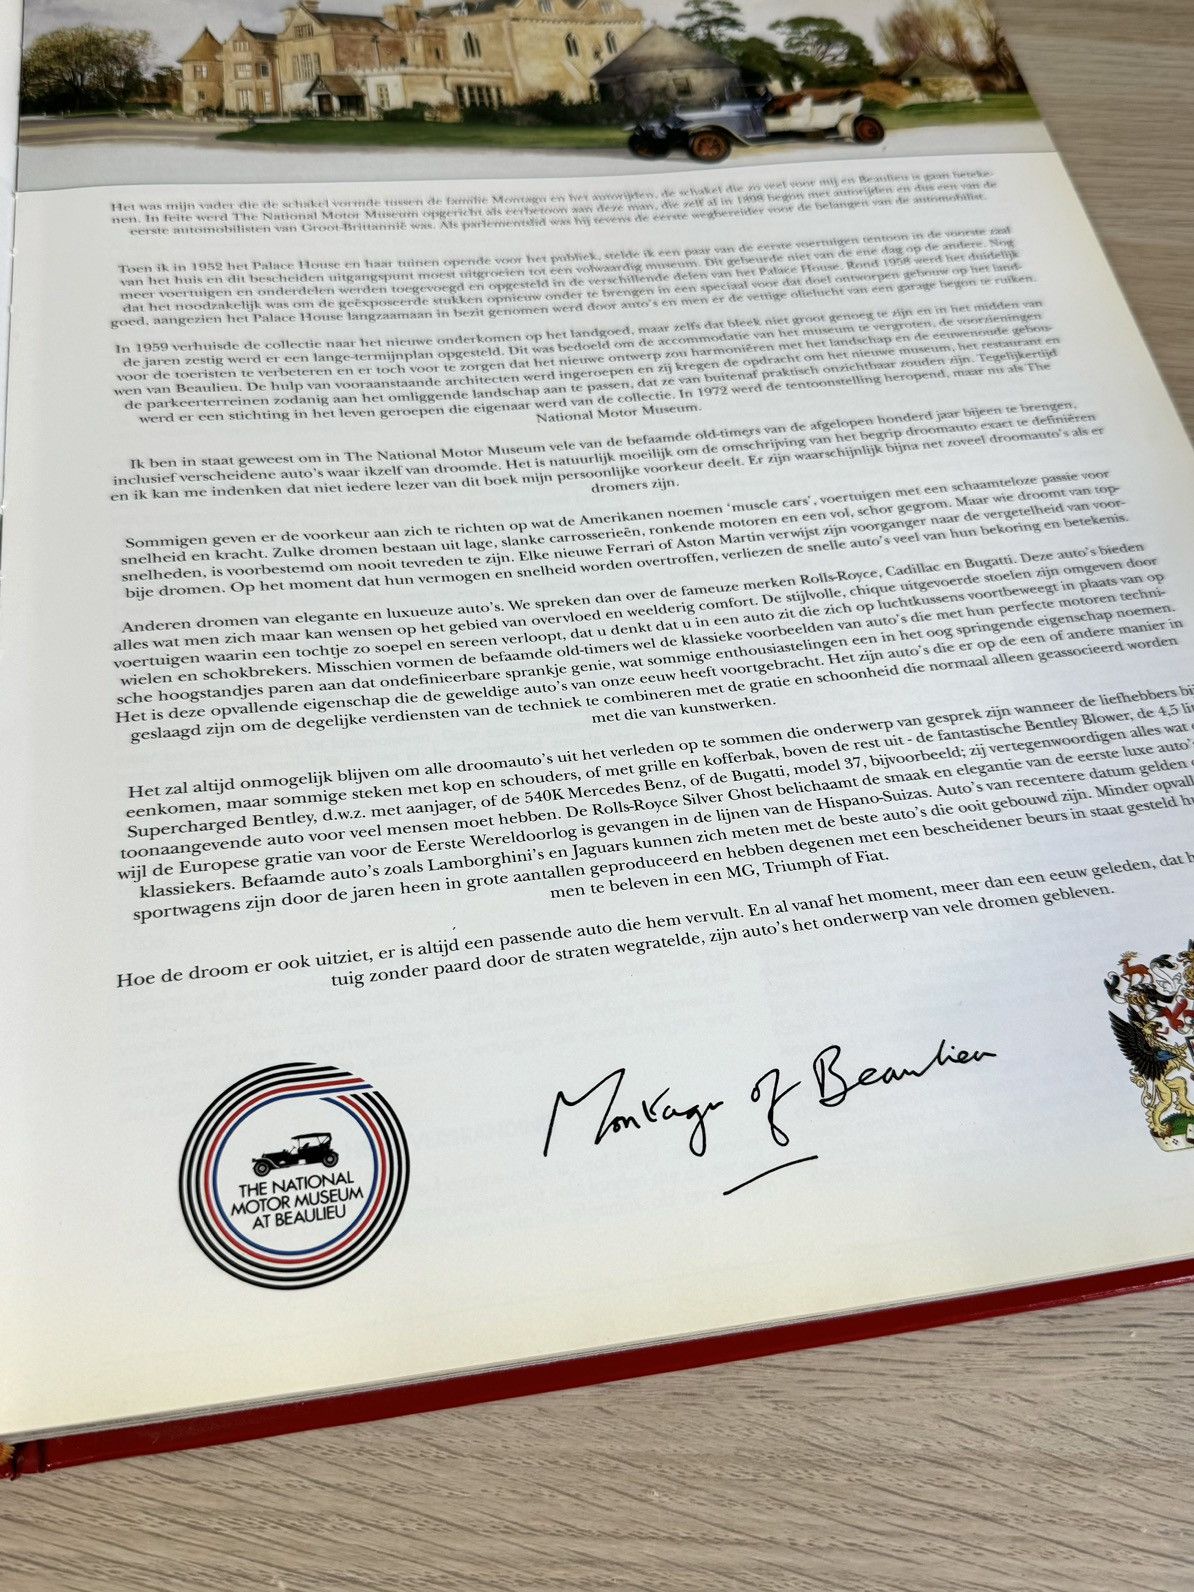 Het was mijn vader die de schakel vormde tussen de familie Montagu en het autorijden, de schakel die zo veel voor mij en Beaulieu is gaan beteke-
nen. In feite werd The National Motor Museum opgericht als eerbetoon aan deze man, die zelf al in 1898 begon met autorijden en dus een van de
eerste automobilisten van Groot-Brittannië was. Als parlementslid was hij tevens de eerste wegbereider voor de belangen van de automobilist.
Toen ik in 1952 het Palace House en haar tuinen opende voor het publiek, stelde ik een paar van de eerste voertuigen tentoon in de voorste zaal
van het huis en dit bescheiden uitgangspunt moest uitgroeien tot een volwaardig museum. Dit gebeurde niet van de ene dag op de andere. Nog
meer voertuigen en onderdelen werden toegevoegd en opgesteld in de verschillende delen van het Palace House. Rond 1958 werd het duidelijk
dat het noodzakelijk was om de geëxposeerde stukken opnieuw onder te brengen in een speciaal voor dat doel ontworpen gebouw op het land-
goed, aangezien het Palace House langzaamaan in bezit genomen werd door auto's en men er de vettige olielucht van een garage begon te ruiken.
In 1959 verhuisde de collectie naar het nieuwe onderkomen op het landgoed, maar zelfs dat bleek niet groot genoeg te zijn en in het midden van
de jaren zestig werd er een lange-termijnplan opgesteld. Dit was bedoeld om de accommodatie van het museum te vergroten, de voorzieningen
voor de toeristen te verbeteren en er toch voor te zorgen dat het nieuwe ontwerp zou harmoniëren met het landschap en de eeuwenoude gebou-
wen van Beaulieu. De hulp van vooraanstaande architecten werd ingeroepen en zij kregen de opdracht om het nieuwe museum, het restaurant en
de parkeerterreinen zodanig aan het omliggende landschap aan te passen, dat ze van buitenaf praktisch onzichtbaar zouden zijn. Tegelijkertijd
werd er een stichting in het leven geroepen die eigenaar werd van de collectie. In 1972 werd de tentoonstelling heropend, maar nu als The
National Motor Museum.
Ik ben in staat geweest om in The National Motor Museum vele van de befaamde old-timers van de afgelopen honderd jaar bijeen te brengen,
inclusief verscheidene auto's waar ikzelf van droomde. Het is natuurlijk moeilijk om de omschrijving van het begrip droomauto exact te definiëren
en ik kan me indenken dat niet iedere lezer van dit boek mijn persoonlijke voorkeur deelt. Er zijn waarschijnlijk bijna net zoveel droomauto's als er
dromers zijn.
Sommigen geven er de voorkeur aan zich te richten op wat de Amerikanen noemen 'muscle cars', voertuigen met een schaamteloze passie voor
snelheid en kracht. Zulke dromen bestaan uit lage, slanke carrosserieën, ronkende motoren en een vol, schor gegrom. Maar wie droomt van top-
snelheden, is voorbestemd om nooit tevreden te zijn. Elke nieuwe Ferrari of Aston Martin verwijst zijn voorganger naar de vergetelheid van voor-
bije dromen. Op het moment dat hun vermogen en snelheid worden overtroffen, verliezen de snelle auto's veel van hun bekoring en betekenis.
Anderen dromen van elegante en luxueuze auto's. We spreken dan over de fameuze merken Rolls-Royce, Cadillac en Bugatti. Deze auto's bieden
alles wat men zich maar kan wensen op het gebied van overvloed en weelderig comfort. De stijlvolle, chique uitgevoerde stoelen zijn omgeven door
voertuigen waarin een tochtje zo soepel en sereen verloopt, dat u denkt dat u in een auto zit die zich op luchtkussens voortbeweegt in plaats van op
wielen en schokbrekers. Misschien vormen de befaamde old-timers wel de klassieke voorbeelden van auto's die met hun perfecte motoren techni-
sche hoogstandjes paren aan dat ondefinieerbare sprankje genie, wat sommige enthousiastelingen een in het oog springende eigenschap noemen.
Het is deze opvallende eigenschap die de geweldige auto's van onze eeuw heeft voortgebracht. Het zijn auto's die er op de een of andere manier in
geslaagd zijn om de degelijke verdiensten van de techniek te combineren met de gratie en schoonheid die normaal alleen geassocieerd worden
met die van kunstwerken.
Het zal altijd onmogelijk blijven om alle droomauto's uit het verleden op te sommen die onderwerp van gesprek zijn wanneer de liefhebbers bij
eenkomen, maar sommige steken met kop en schouders, of met grille en kofferbak, boven de rest uit - de fantastische Bentley Blower, de 4,5 lit
Supercharged Bentley, d.w.z. met aanjager, of de 540K Mercedes Benz, of de Bugatti, model 37, bijvoorbeeld; zij vertegenwoordigen alles wat
toonaangevende auto voor veel mensen moet hebben. De Rolls-Royce Silver Ghost belichaamt de smaak en elegantie van de eerste luxe auto'
wijl de Europese gratie van voor de Eerste Wereldoorlog is gevangen in de lijnen van de Hispano-Suizas. Auto's van recentere datum gelden
klassiekers. Befaamde auto's zoals Lamborghini's en Jaguars kunnen zich meten met de beste auto's die ooit gebouwd zijn. Minder opvall
sportwagens zijn door de jaren heen in grote aantallen geproduceerd en hebben degenen met een bescheidener beurs in staat gesteld
men te beleven in een MG, Triumph of Fiat.
Hoe de droom er ook uitziet, er is altijd een passende auto die hem vervult. En al vanaf het moment, meer dan een eeuw geleden, dat
tuig zonder paard door de straten wegratelde, zijn auto's het onderwerp van vele dromen gebleven.
Montagu of Beaulieu
THE NATIONAL
MOTOR MUSEUM
AT BEAULIEU